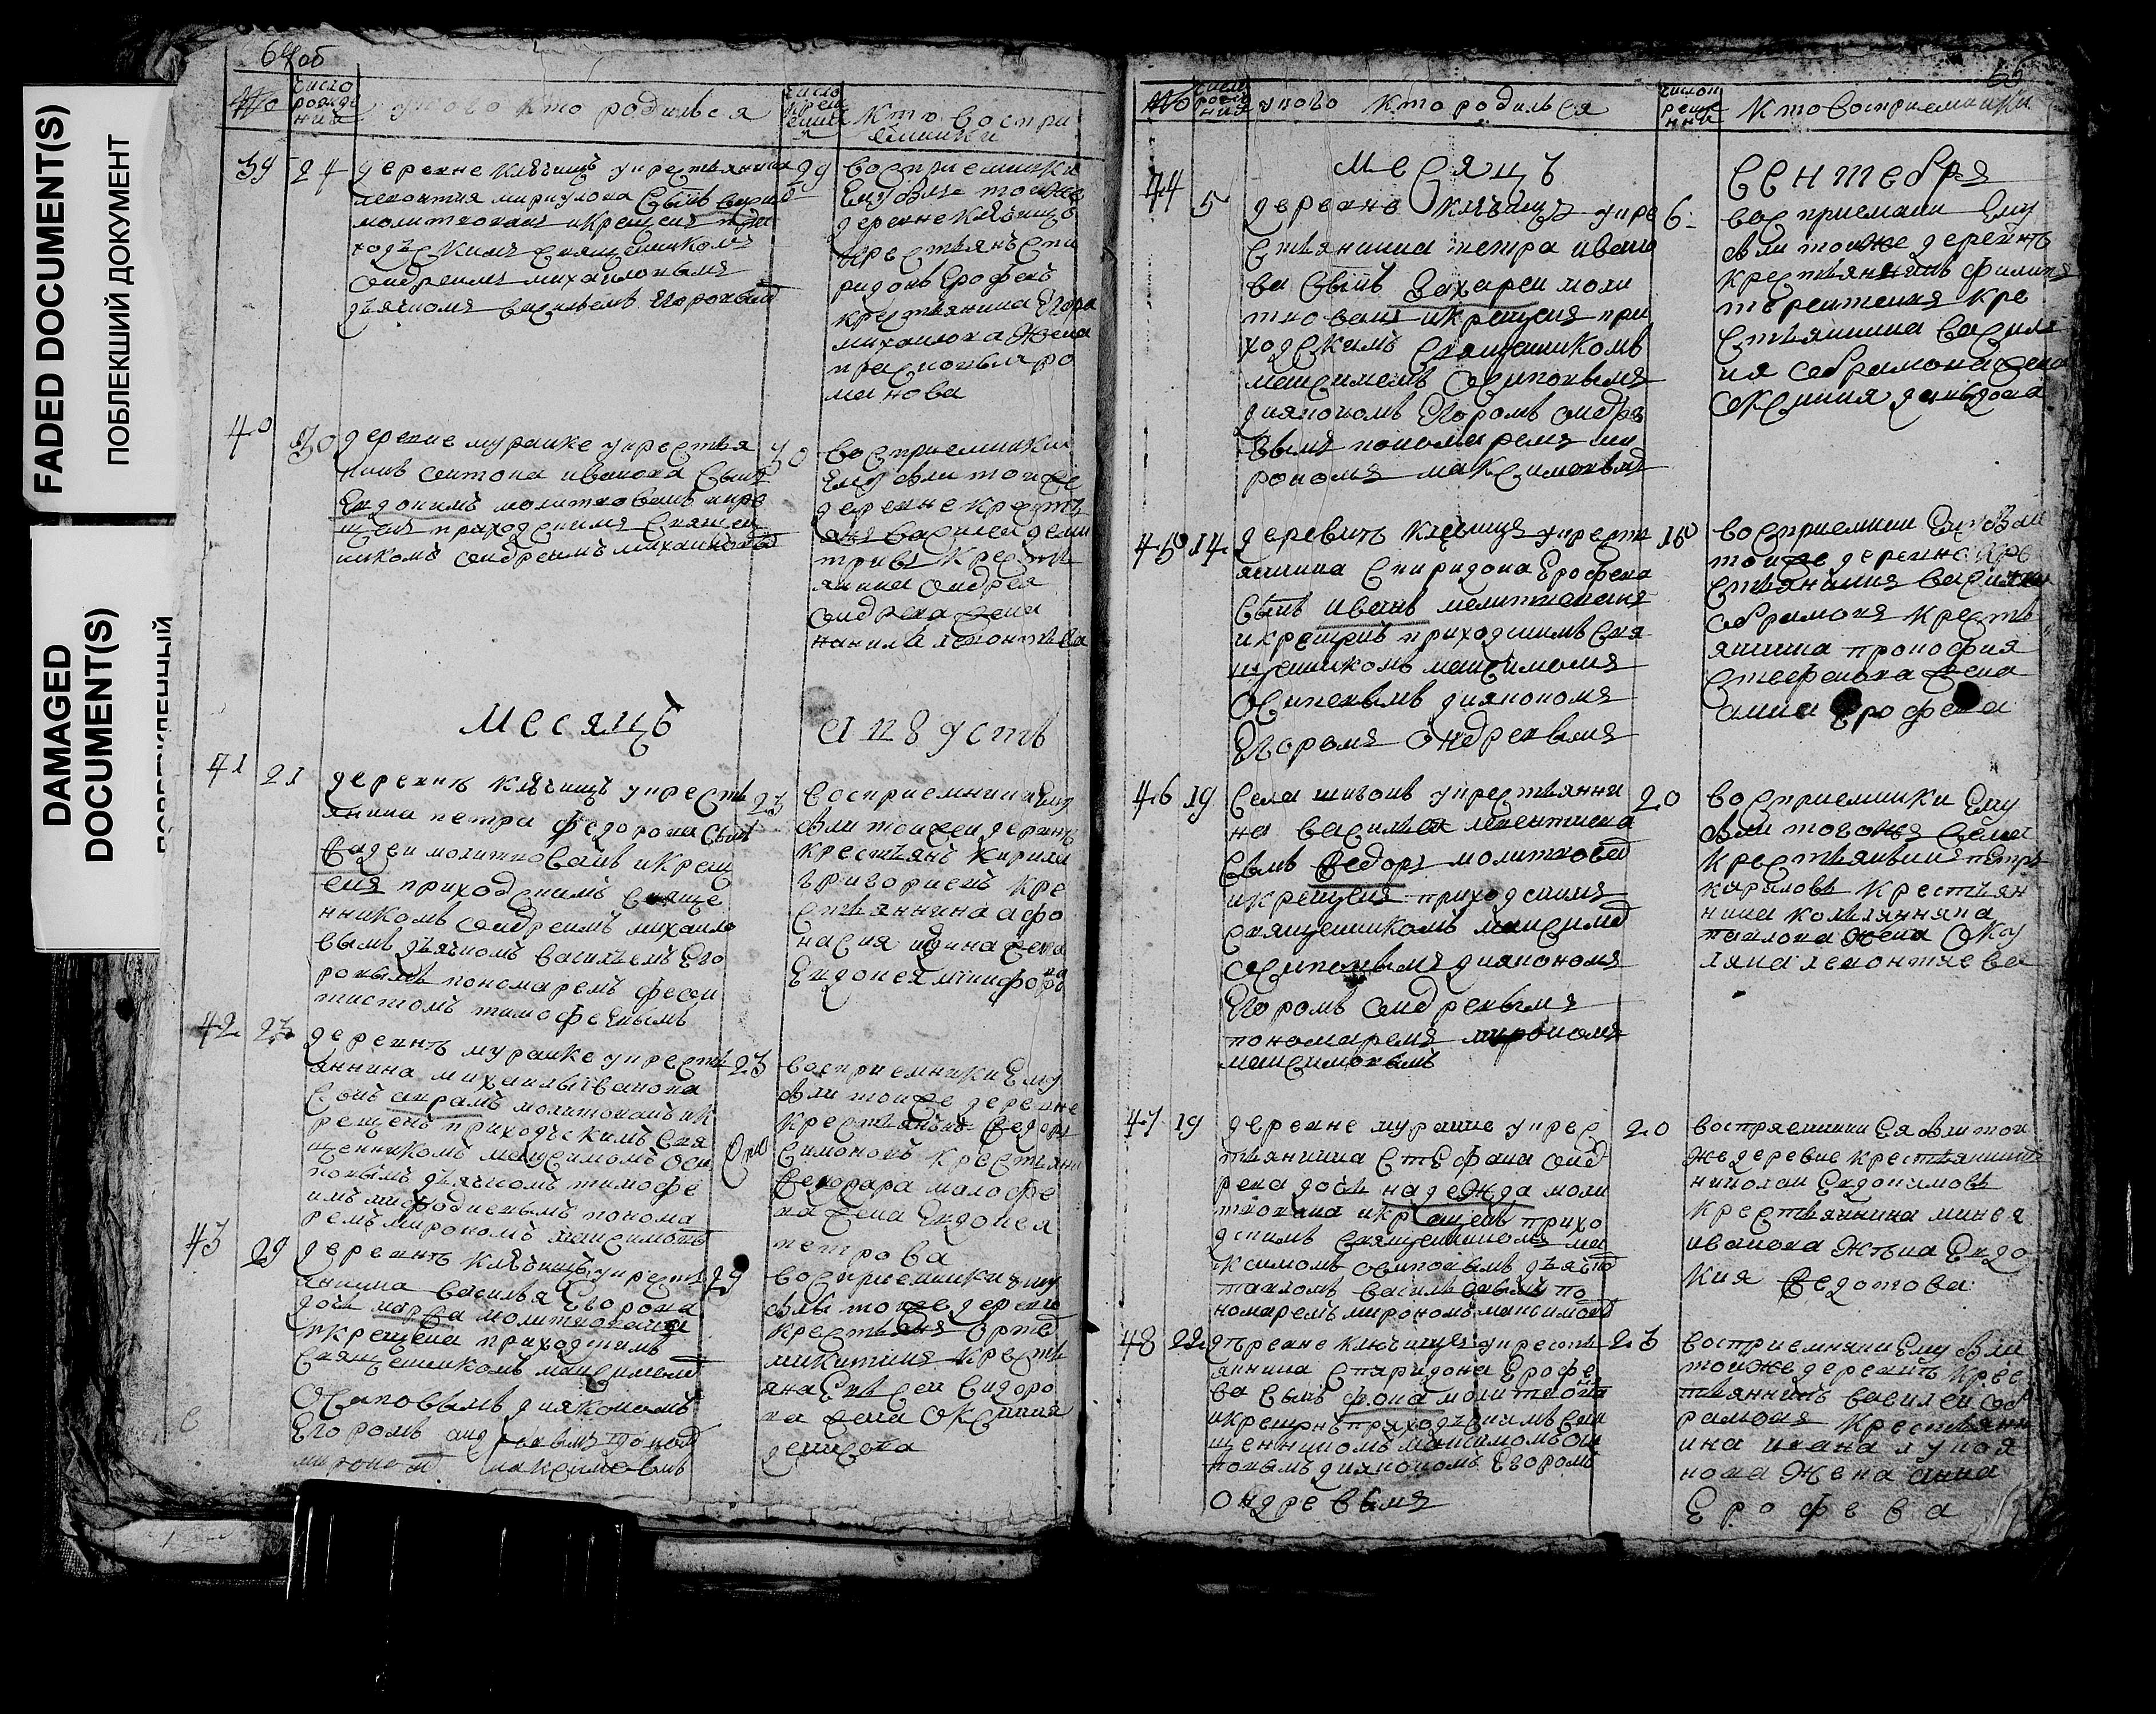 FADED DOCUMENT(S)
ПОБЛЕКШИЙ ДОКУМЕНТ
DAMAGED
DOCUMENT(S)
64об
№
число рожде ний
у кого кто родился
число крещ ения
кто воспри емники
39 24 29
деревне Ключищъ у крестьянина
сынъ
молитвованъ и крещенъ при
ходскимъ священникомъ
андреемъ михаиловымъ
дьячкомъ васильемъ Егоровымъ
восприемники
Ему были тоя же
деревне Ключищъ
крестьянъ Спи
ридонъ Ерофеевъ
крестьянина Егора
михаилова жена
ро
манова
40 30 30
деревне муранке у крестья
нина антона иванова сынъ
Евдокимъ молитвованъ и кре
щенъ приходскимъ священ
никомъ андреемъ михаиловы
восприемники
Ему были тои же
деревне крестья
василеи деми
триевъ крестья
янина андрея
андреева жена
леонтьева
месяцъ августъ
41 21 23
деревнъ Ключищъ у кресть
янина петра федорова сынъ
фадеи молитвованъ и крещ
енъ приходскимъ свяще
нникомъ андреемъ михаило
вымъ дьячкомъ василъемъ Его
ровымъ пономаремъ феок
тистомъ тимофеевымъ
восприемники Ему
были тои же деревнъ
крестьянъ Кирила
григориевъ кре
стьяннина афо
насия жена
Евдокея
42 23 23
деревнъ муранке у кресть
аннина михаилы иванова
сынъ аврамъ молитвованъ и к
рещенъ приходъскимъ свя
щенникомъ максимомъ оси
повымъ дьячкомъ тимофе
емъ понома
ремъ мирономъ максимовы
восприемники Ему
были тои же деревне
крестьянинъ федоръ
симоновъ крестьяни
жена Евдокея
петрова
43 29 29
деревнъ Ключищъ у кресть
янина василья Егорова
дочь марфа молитвована
и крещена приходскимъ
священникомъ максимомъ
Осиповымъ дияконамъ
Егоромъ андреевымъ поном
мироном максимовымъ
восприемники
были тои же деревн
крестьянъ
микитинъ кресть
яна Сидоро
ва жена Оксиния
денисова
65
№
число рожде ния
у кого кто родилься
число к реще нии
кто восприемники
месяцъ сентебря
44 5 6
деревне Ключищъ у кре
стьянина петра ивано
ва сынъ Захареи моли
твованъ и крещенъ при
ходскимъ священникомъ
максимомъ Осиповымъ
дияконъ Егоромъ андре
евымъ пономаремъ ми
рономъ максимовымъ
восприемники Ему
были тои же деревнъ
крестьянинъ филипъ
терентиевъ кре
стьянина васили
ия абрамова жена
Оксиния давыдова
45 14 16
деревнъ Ключищъ у кресть
янина Спиридона Ерофеева
сынъ иванъ молитвованъ
и крещенъ приходскимъ свя
щенникомъ максимомъ
Осиповымъ дияконом
Егоромъ Ондреевымъ
восприемники Ему были
тои же деревне кре
стьянинъ василеи
абрамовъ кресть
янина прокофия
Стефанова жена
анна Ерофеева
46 19 20
села у крестьянни
на василья леонтиева
сынъ федоръ молитвова
и крещенъ приходским
священникомъ максимо
Осиповымъ дияконом
Егоромъ андреевымъ
пономаремъ мироном
максимовымъ
восприемники Ему
были того же села
крестьянинъ петръ
кариловъ крестьян
нина
павлова жена Оку
лина леонтиева
47 19 20
деревне муранке у крес
тьянина Стефана анд
реева дочь надежда моли
твована и крещенъ прихо
дскимъ священникомъ ма
ксимомъ осиповымъ дьячк
павломъ васильевымъ по
номаремъ мирономъ максимовы
восприемники Ея были тои
же деревне крестьянинъ
николаи Евдокимовъ
крестьяннина минея
иванова жъна Евдо
кия федотова
48 22 23
деревне ключищъ у кресть
яннина Спиридона Ерофе
ва сынъ фока молитвова
и крещонъ приходъскимъ свя
щенникомъ максимомъ оси
повымъ дияконом Егоромъ
ондревымъ
восприемники Ему были
тои же деревнъ крес
тьяннинъ василеи аб
рамовъ крестьянн
ина ивана лукоя
нова жена анна
Ерофева